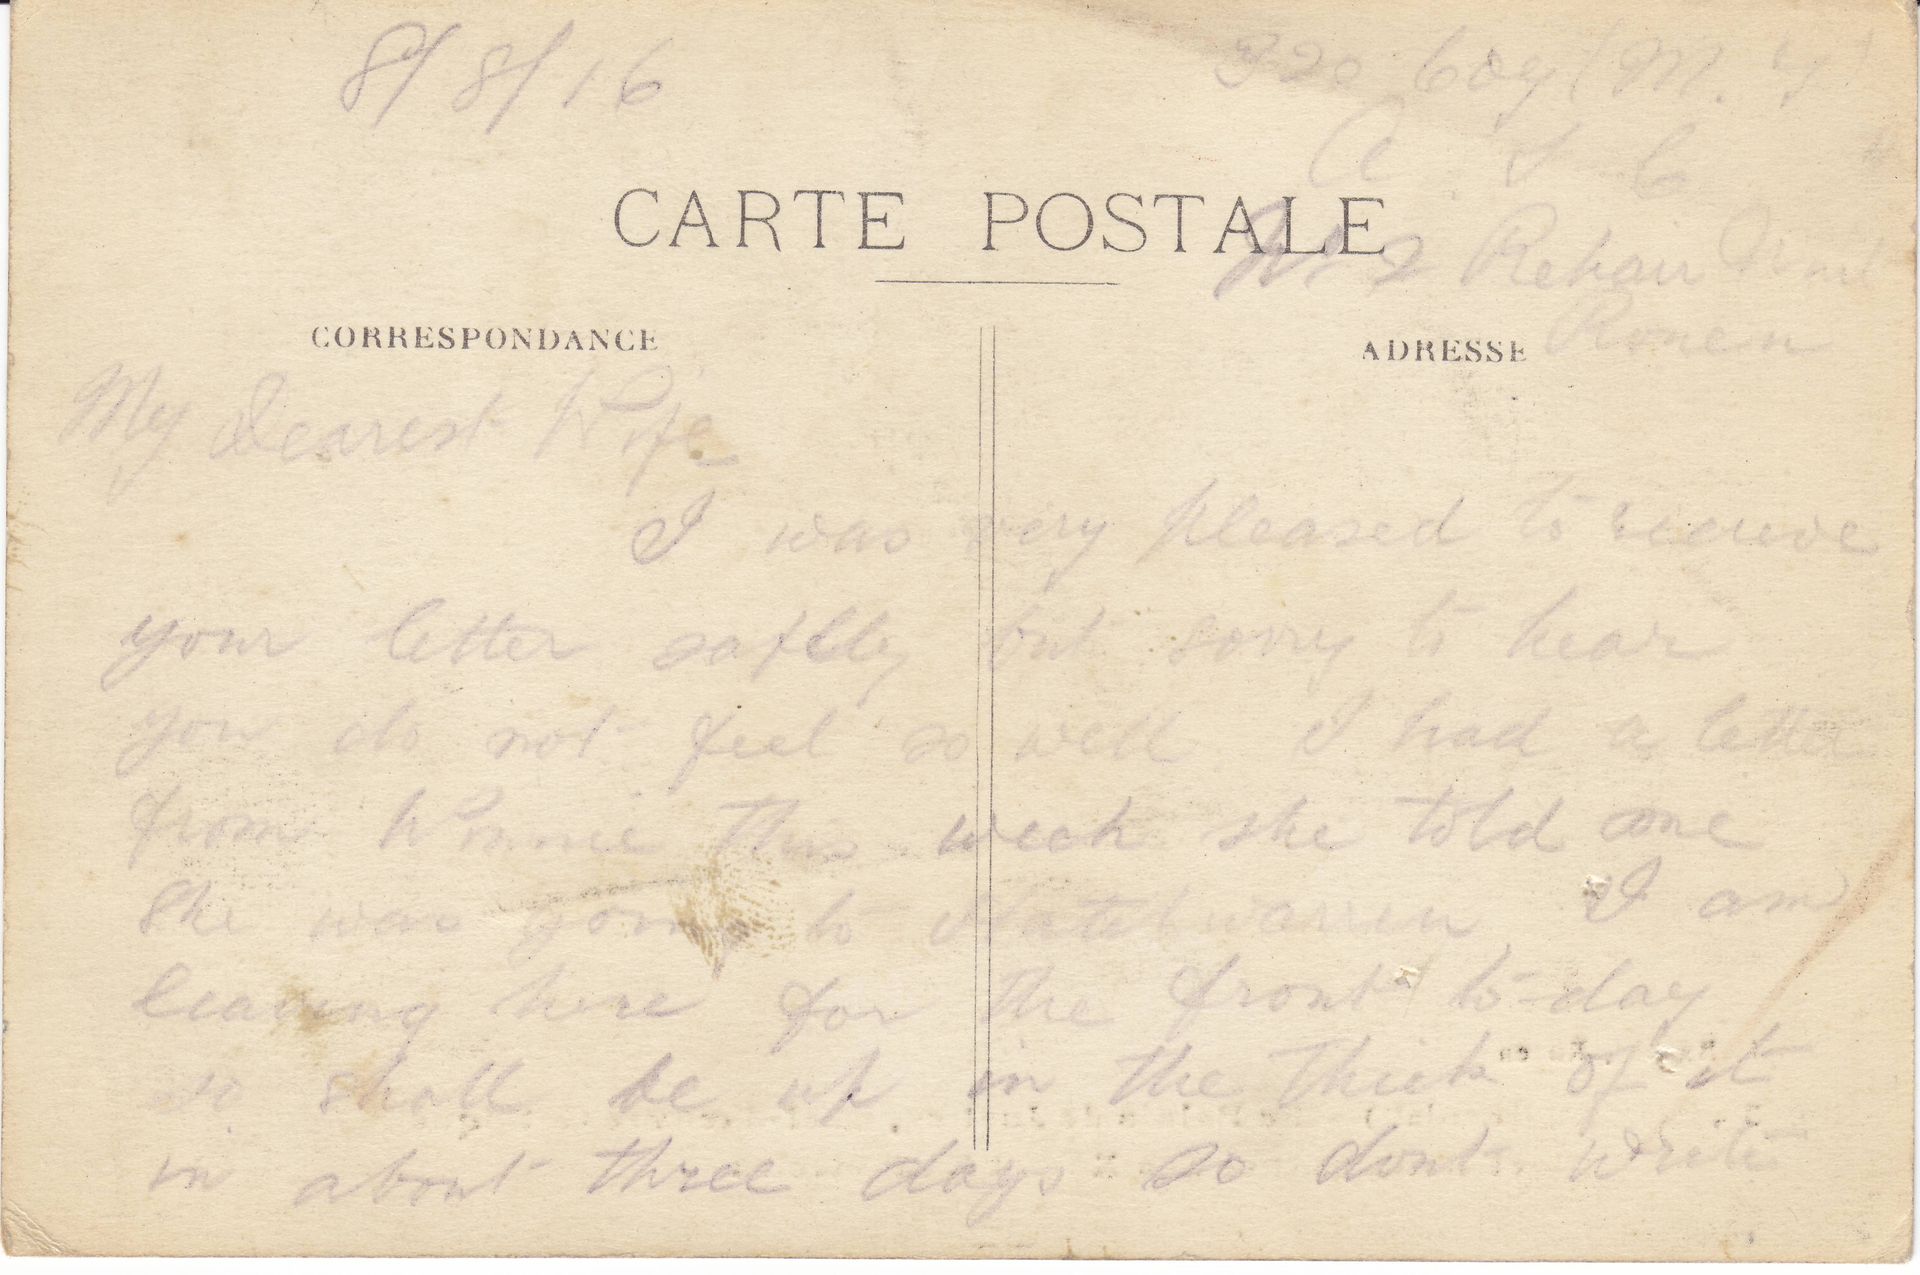 8/8/16
320 Coy (M.T)
A. S. C
No 2 Repair Unit
Rouen
CARTE POSTALE
CORRESPONDANCE
ADRESSE
My Dearest Wife
I was very pleased to recieve
your letter saflly but sorry to hear
you do not feel so well. I had a letter
from Winnie this week she told me
She was going to warren I am
leaving here for the front to-day
so shall be up in the thick of it
in about three days so dont write